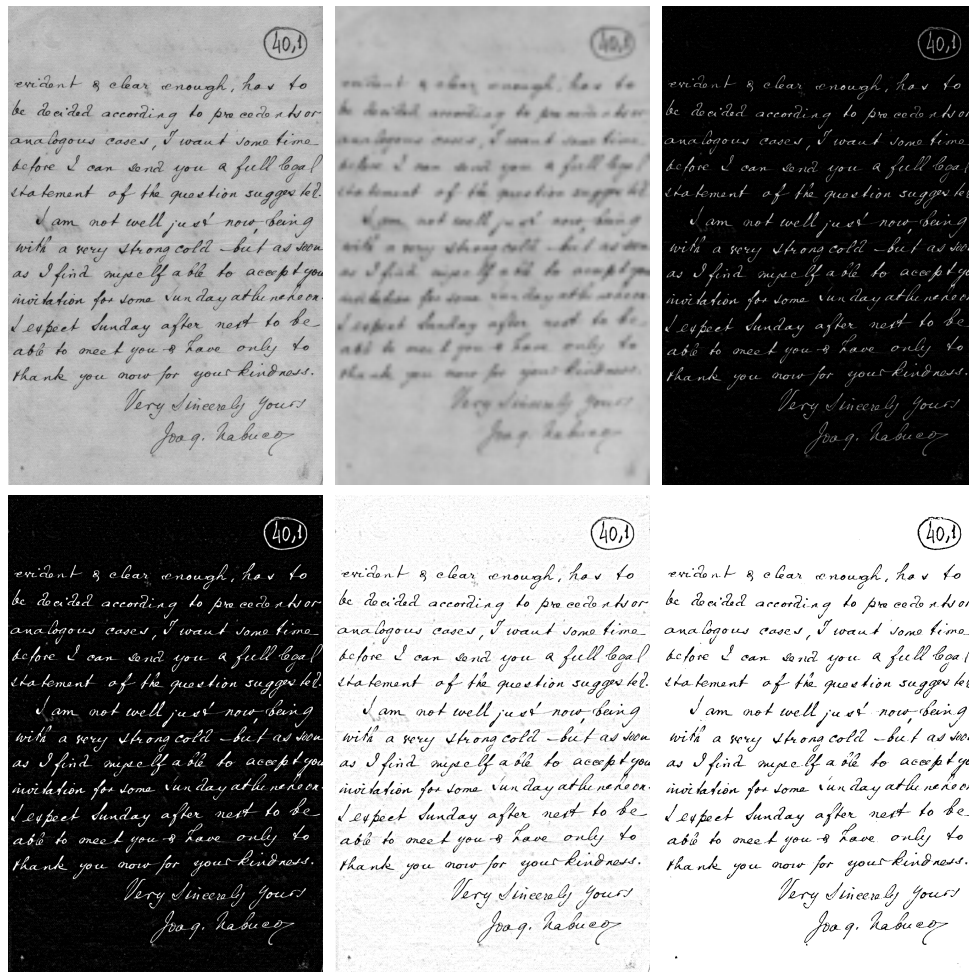 40,1
evident & clear enough, has to
be decided according to precedents or
analogous cases, I want some time
before I can send you a full legal
statement of the question suggested.
I am not well just now, being
with a very strong cold - but as soon
as I find myself able to accept your
invitation for some Sunday at luncheon.
I expect Sunday after next to be
able to meet you & have only to
thank you now for your kindness.
Very Sincerely yours
Joaq. Nabuco